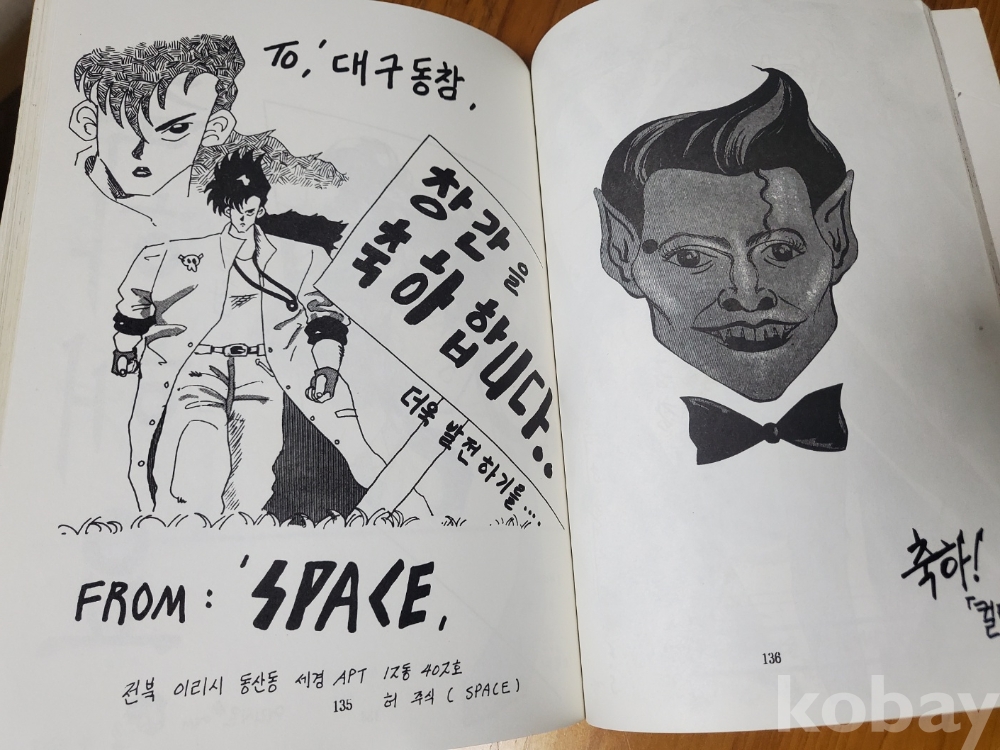 To, 대구동참,
창간을
축하합니다..
더욱 발전하기를....
FROM: 'SPACE,
전북 이리시 동산동 세경 APT 12동 402호
허 주식 (SPACE)
135
축하!
136
kobay